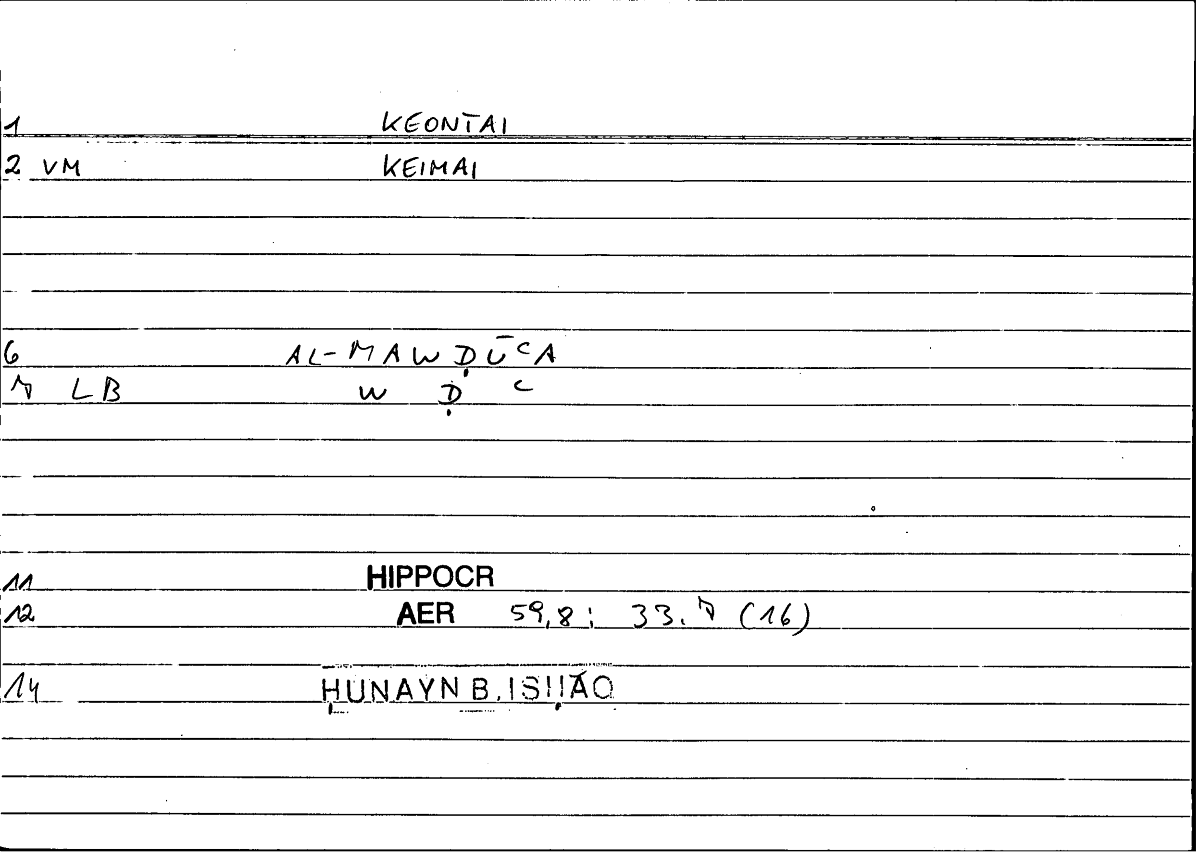 1 KEONTAI
2 VM KEIMAI
6 AL-MAWḌŪʿA
7 LB W Ḍ ʿ
11 HIPPOCR
12 AER 59,8; 33.7 (16)
14 ḤUNAYN B. ISḤĀQ